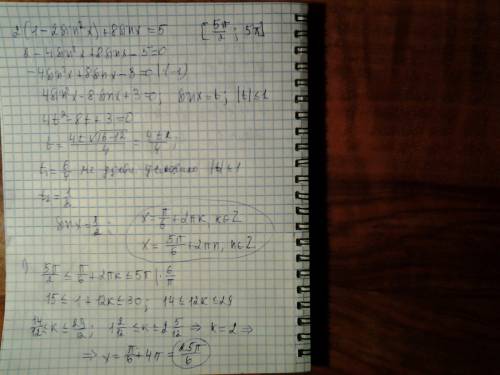 2(1-2sin²x)+8sinx=5 [5π/2; 5π]
2-4sin²x+8sinx-5=0
-4sin²x+8sinx-3=0 |·(-1)
4sin²x-8sinx+3=0; sinx=t; |t|≤1
4t²-8t+3=0
t=(4±√16-12)/4=(4±2)/4;
t₁=6/4 не удовл условию |t|≤1
t₂=1/2
sinx=1/2; x=π/6+2πk, k∈Z
x=5π/6+2πn, n∈Z
1) 5π/2≤π/6+2πk≤5π |·6/π
15≤1+12k≤30; 14≤12k≤29
14/12≤k≤29/12; 1 2/12≤k≤2 5/12 ⇒ k=2 ⇒
⇒ x=π/6+4π=25π/6